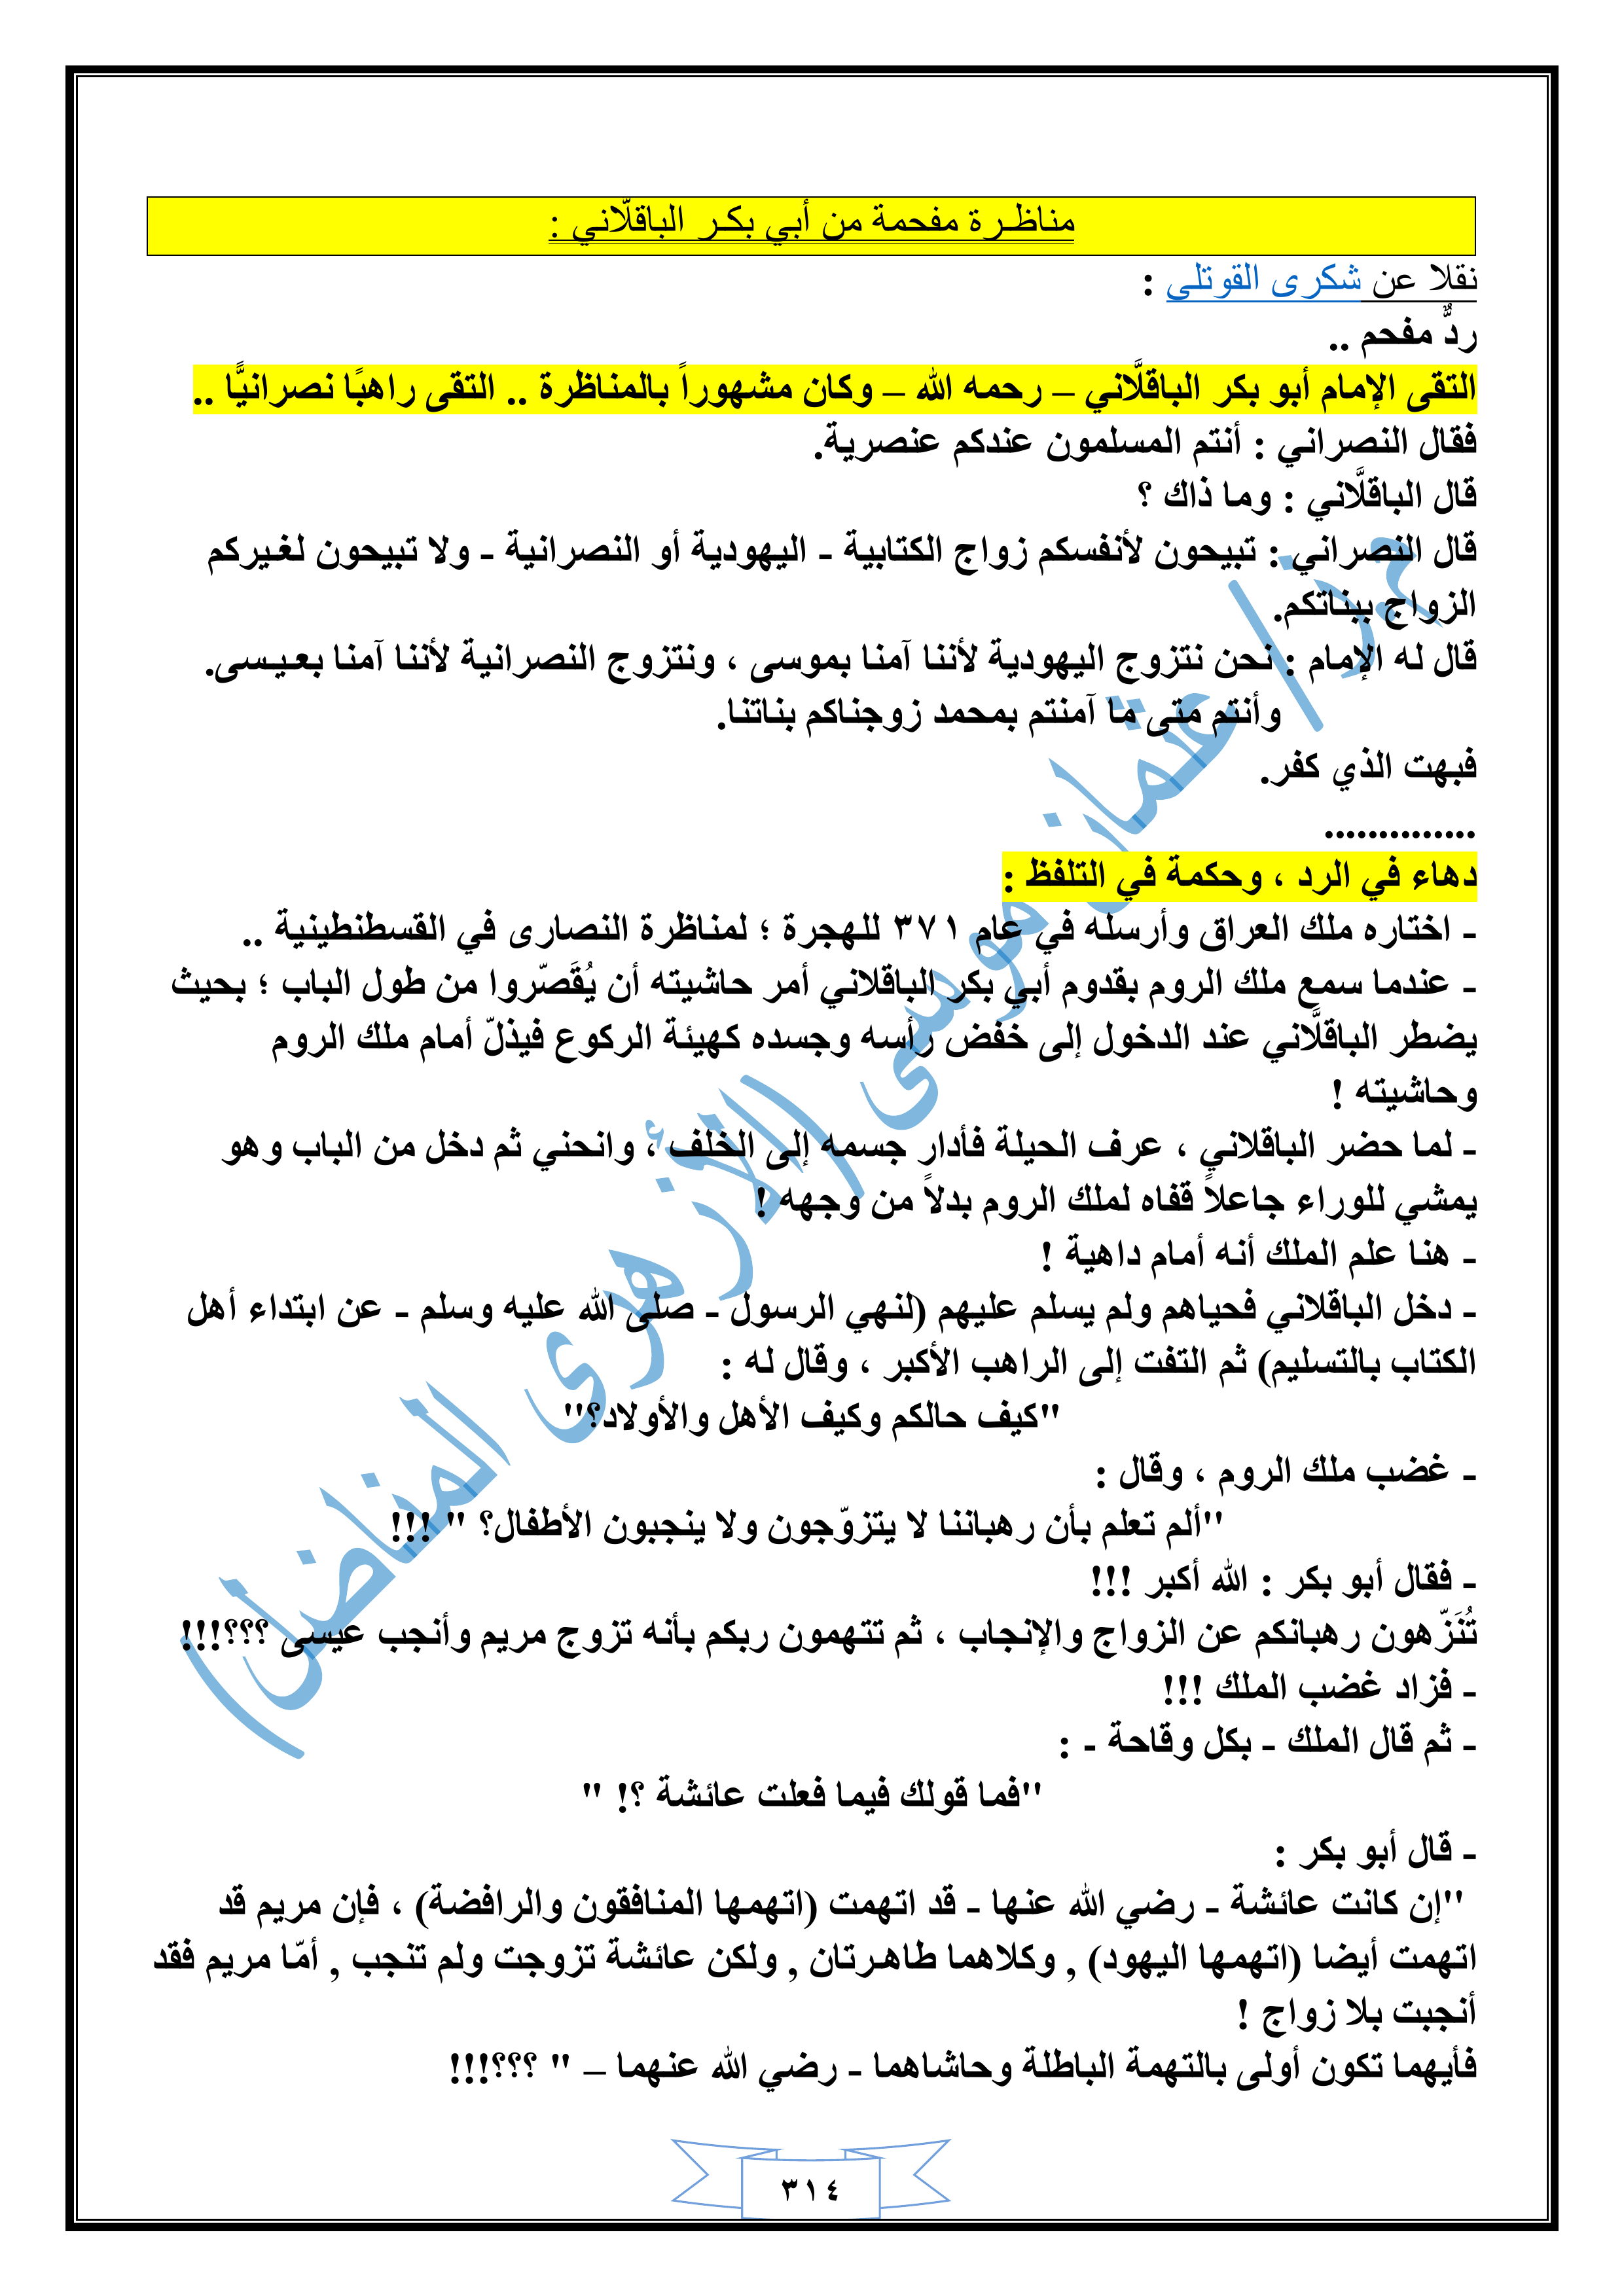 مناظـرة مفحمة من أبي بكـر الباقلّاني :
نقلا عن شكرى القوتلي :
ردٌّ مفحم ..
التقى الإمام أبو بكر الباقلَّاني – رحمه الله – وكان مشهوراً بالمناظرة .. التقى راهبًا نصرانيًّا ..
فقال النصراني : أنتم المسلمون عندكم عنصرية.
قال الباقلَّاني : وما ذاك ؟
قال النصراني : تبيحون لأنفسكم زواج الكتابية - اليهودية أو النصرانية - ولا تبيحون لغـيركم
الزواج ببناتكم.
قال له الإمام : نحن نتزوج اليهودية لأننا آمنا بموسى ، ونتزوج النصرانية لأننا آمنا بعـيـسى.
وأنتم متى ما آمنتم بمحمد زوجناكم بناتنا.
فبهت الذي كفر.
..............
دهاء في الرد ، وحكمة في التلفظ :
- اختاره ملك العراق وأرسله في عام ٣٧١ للهجرة ؛ لمناظرة النصارى في القسطنطينية ..
- عندما سمع ملك الروم بقدوم أبي بكر الباقلاني أمر حاشيته أن يُقَصّروا من طول الباب ؛ بحيث
يضطر الباقلَّاني عند الدخول إلى خفض رأسه وجسده كهيئة الركوع فيذلّ أمام ملك الروم
وحاشيته !
- لما حضر الباقلاني ، عرف الحيلة فأدار جسمه إلى الخلف ، وانحني ثم دخل من الباب وهو
يمشي للوراء جاعلاً قفاه لملك الروم بدلاً من وجهه !
- هنا علم الملك أنه أمام داهية !
- دخل الباقلاني فحياهم ولم يسلم عليهم (لنهي الرسول - صلى الله عليه وسلم - عن ابتداء أهل
الكتاب بالتسليم) ثم التفت إلى الراهب الأكبر ، وقال له :
"كيف حالكم وكيف الأهل والأولاد؟"
- غضب ملك الروم ، وقال :
"ألم تعلم بأن رهباننا لا يتزوّجون ولا ينجبون الأطفال؟ " !!!
- فقال أبو بكر : الله أكبر !!!
تُنَزّهون رهبانكم عن الزواج والإنجاب ، ثم تتهمون ربكم بأنه تزوج مريم وأنجب عيسى ؟؟؟!!!
- فزاد غضب الملك !!!
- ثم قال الملك - بكل وقاحة - :
"فما قولك فيما فعلت عائشة ؟! "
- قال أبو بكر :
"إن كانت عائشة - رضي الله عنها - قد اتهمت (اتهمها المنافقون والرافضة) ، فإن مريم قد
اتهمت أيضا (اتهمها اليهود) , وكلاهما طاهـرتان , ولكن عائشة تزوجت ولم تنجب , أمّا مريم فقد
أنجبت بلا زواج !
فأيهما تكون أولى بالتهمة الباطلة وحاشاهما - رضي الله عنهما – " ؟؟؟!!!
٣١٤
عثمان موسى (الأزهرى المناضل)